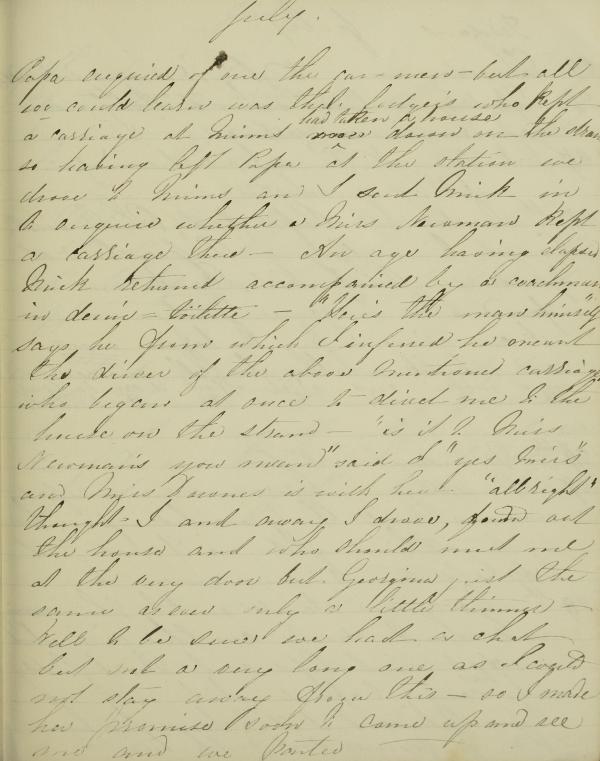 July.
Papa enquired of one the car-men - but all
we could learn was that lodgers who kept
had taken a house
a carriage at Mims down on the strand
so having left Papa at the station we
drove to Mims and I sent Mick in
to enquire whether a Miss Newman kept
a carriage there - An age having elapsed
Mick returned accompanied by a coachman
in demi-toilette - "Here's the man himself"
says he from which I inferred he meant
the driver of the above mentioned carriage
who began at once to direct me to the
house on the strand - "is it to Miss
Newman's you mean" said I "yes Miss"
and Miss Downes is with her. "all right"
thought I and away I drove, found out
the house and who should meet me
at the very door but Georgina just the
same as ever only a little thinner -
Well to be sure we had a chat
but not a very long one as I could
not stay away from this - so I made
her promise soon to come up and see
me and we parted